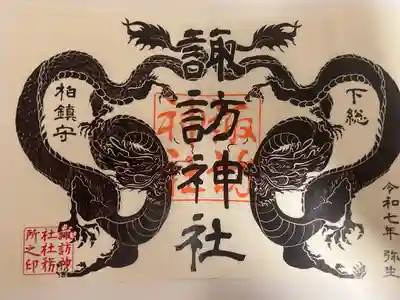 下総
諏訪神社
柏鎮守
令和七年 弥生
諏訪神
社社務
所之印
諏訪
神社